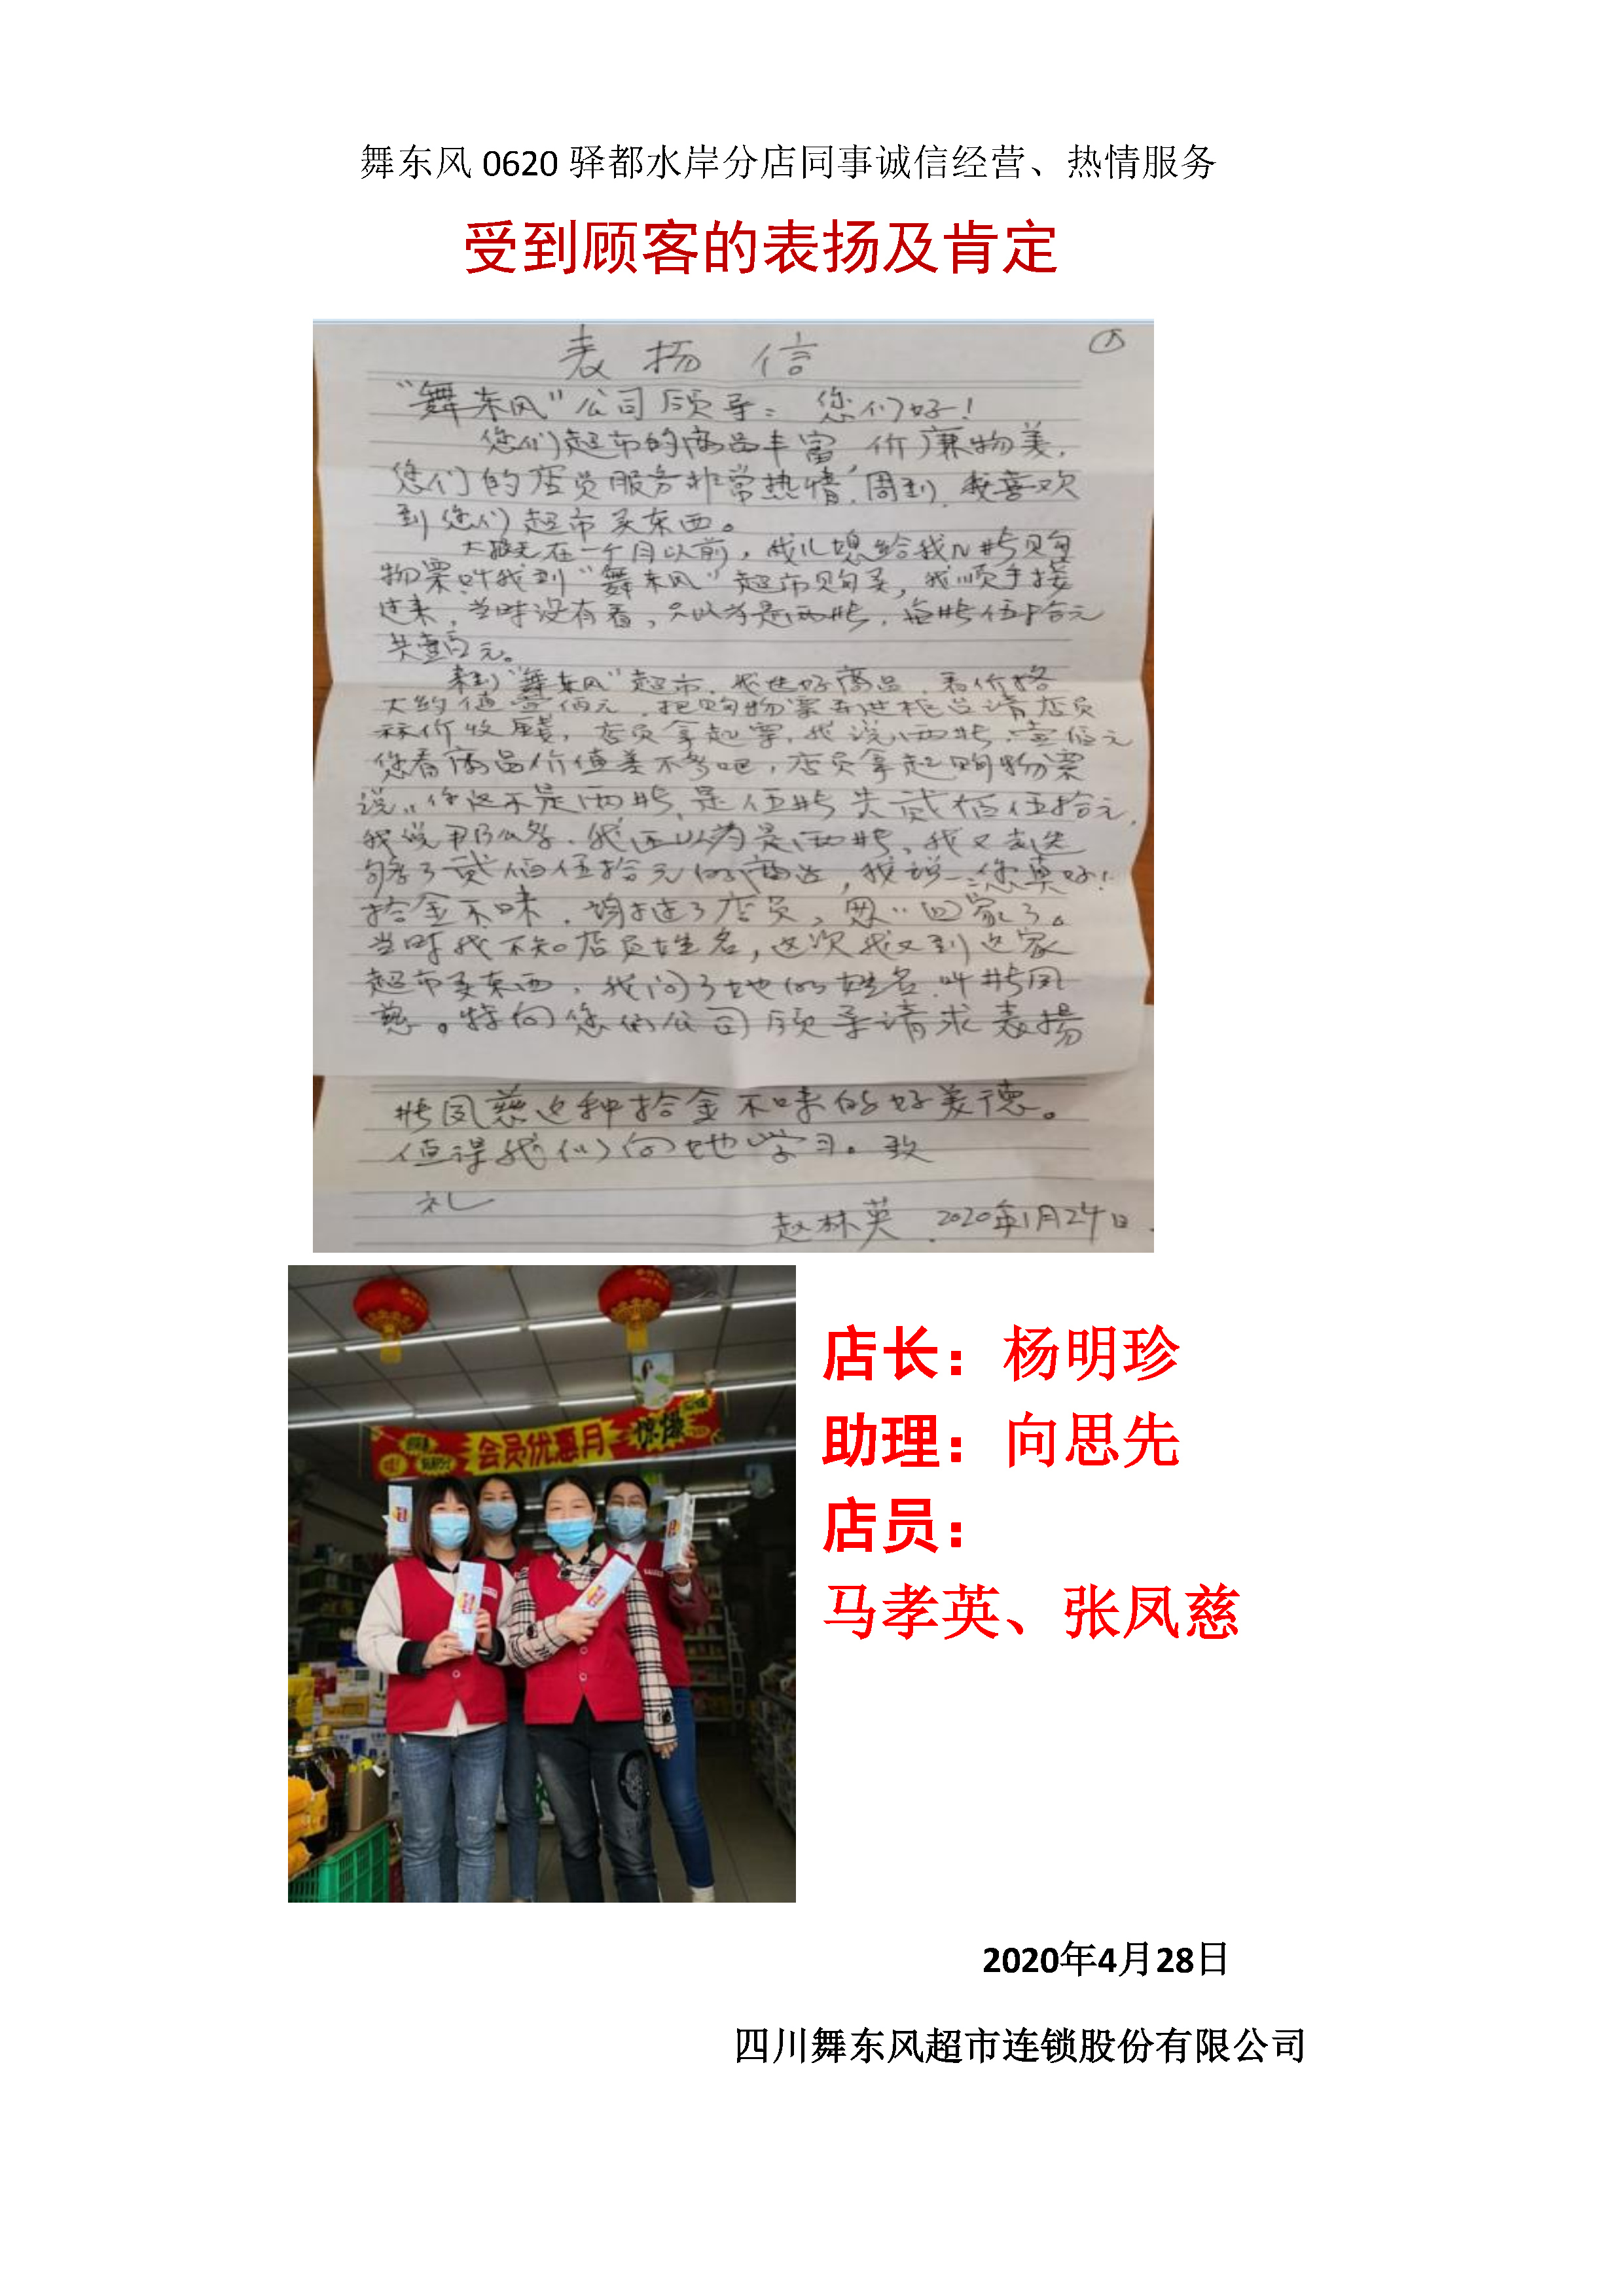 舞东风 0620 驿都水岸分店同事诚信经营、热情服务
受到顾客的表扬及肯定
表扬信
“舞东风”公司领导：您们好！
您们超市的商品丰富 价廉物美，
您们的店员服务非常热情，周到，我喜欢
到您们超市买东西。
大概在一个月以前，我儿媳给我几张购
物票叫我到“舞东风”超市购买，我顺手接
过来，当时没有看，只以为是两张，每张伍拾元
共壹百元。
来到“舞东风”超市，我选好商品，看价格
大约值壹佰元，把购物票弄进柜台请店员
标价收钱，店员拿起票，我说两张，壹佰元
您看商品价值差不多吧，店员拿起购物票
说：你这不是两张，是伍张共贰佰伍拾元，
我说那么多，我还以为是两张，我又去选
够了贰佰伍拾元的商品，我说：您真好！
拾金不昧，谢过了店员，回家了。
当时我不知店员姓名，这次我又到这家
超市买东西，我问了她的姓名叫张凤
慈。特向您们公司领导请求表揚
张凤慈这种拾金不昧的好美德。
值得我们向她学习。致
礼
赵林英 2020年1月24日
会员优惠月 惊爆
店长：杨明珍
助理：向思先
店员：
马孝英、张凤慈
2020年4月28日
四川舞东风超市连锁股份有限公司